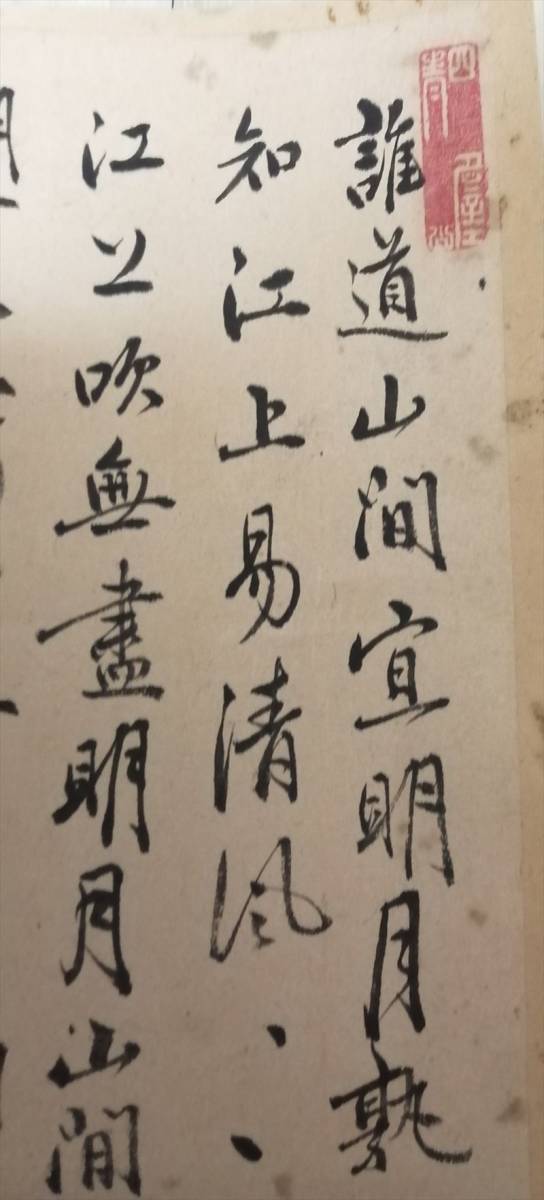 誰道山間宜明月孰
知江上易清風、、
江上吹無盡明月山間